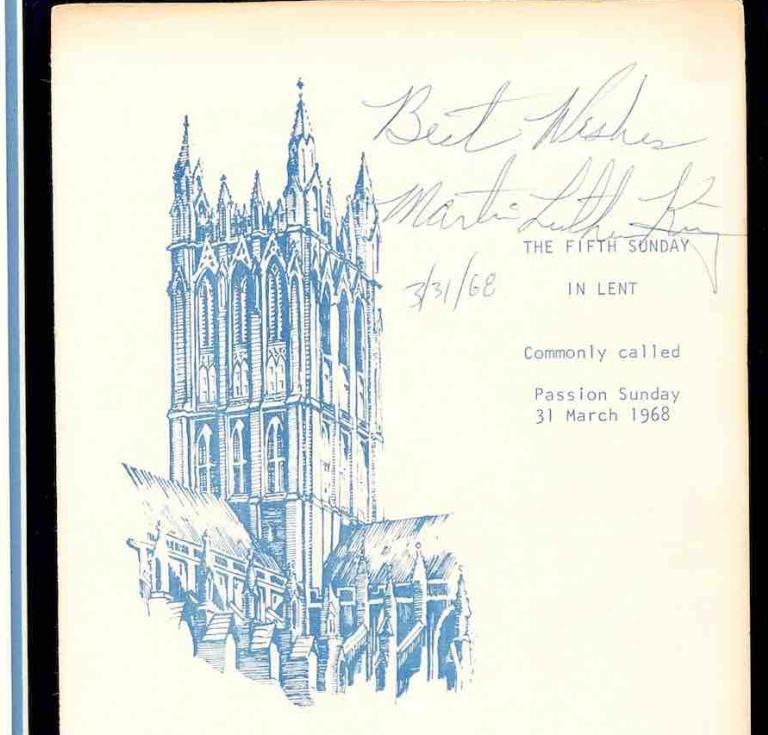 Best Wishes
Martin Luther King
3/31/68
THE FIFTH SUNDAY
IN LENT
Commonly called
Passion Sunday
31 March 1968